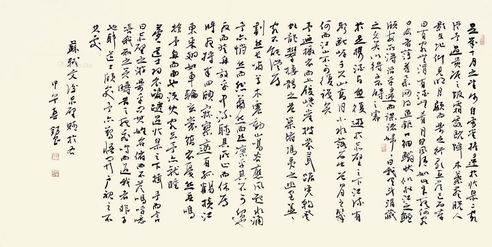 是歲十月之望步自雪堂將歸於臨皋二客
從予過黃泥之坂霜露既降木葉盡脫人
影在地仰見明月顧而樂之行歌相答已而
歎曰有客無酒有酒無肴月白風清如此良夜何客
曰今者薄暮舉網得魚巨口細鱗狀似松江之鱸
顧安所得酒乎歸而謀諸婦婦曰我有斗酒藏
之久矣以待子不時之需
於是攜酒與魚復遊於赤壁之下江流有
聲斷岸千尺山高月小水落石出曾日月之幾
何而江山不可復識矣
予乃攝衣而上履巉巖披蒙茸踞虎豹登
虬龍攀棲鶻之危巢俯馮夷之幽宮蓋二
客不能從焉
劃然長嘯草木震動山鳴谷應風起水涌
予亦悄然而悲肅然而恐凜乎其不可留也
反而登舟放乎中流聽其所止而休焉
時夜將半四顧寂寥適有孤鶴橫江
東來翅如車輪玄裳縞衣戛然長鳴
掠予舟而西也須臾客去予亦就睡
夢一道士羽衣蹁躚過臨皋之下揖予而言
曰赤壁之遊樂乎問其姓名俛而不答嗚呼噫
嘻我知之矣疇昔之夜飛鳴而過我者非子
也耶道士顧笑予亦驚寤開戶視之不
見其處
蘇軾文後赤壁賦
甲午春